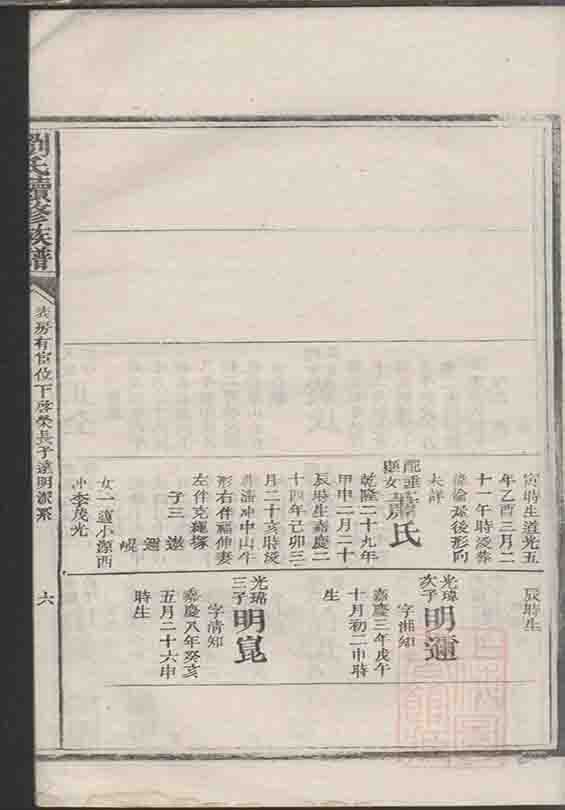 寅時生道光五
年乙酉三月二
十一午時歿葬
後形向
未詳
配
氏
乾隆二十九年
甲申二月二十
辰時生嘉慶二
十四年己卯三
月二十亥時歿
葬清冲中山午
形右伴福伸妻
左伴克繩塚
子三 遜
邇
崐
女一適小源西
冲李茂光
辰時生
光瑋
次子
明邇
字湘知
嘉慶三年戊午
十月初二申時
生
光瑋
三子
明崑
字清知
嘉慶八年癸亥
五月二十六申
時生
劉氏續修族譜
房有富位下啓榮長子遠明派系
六